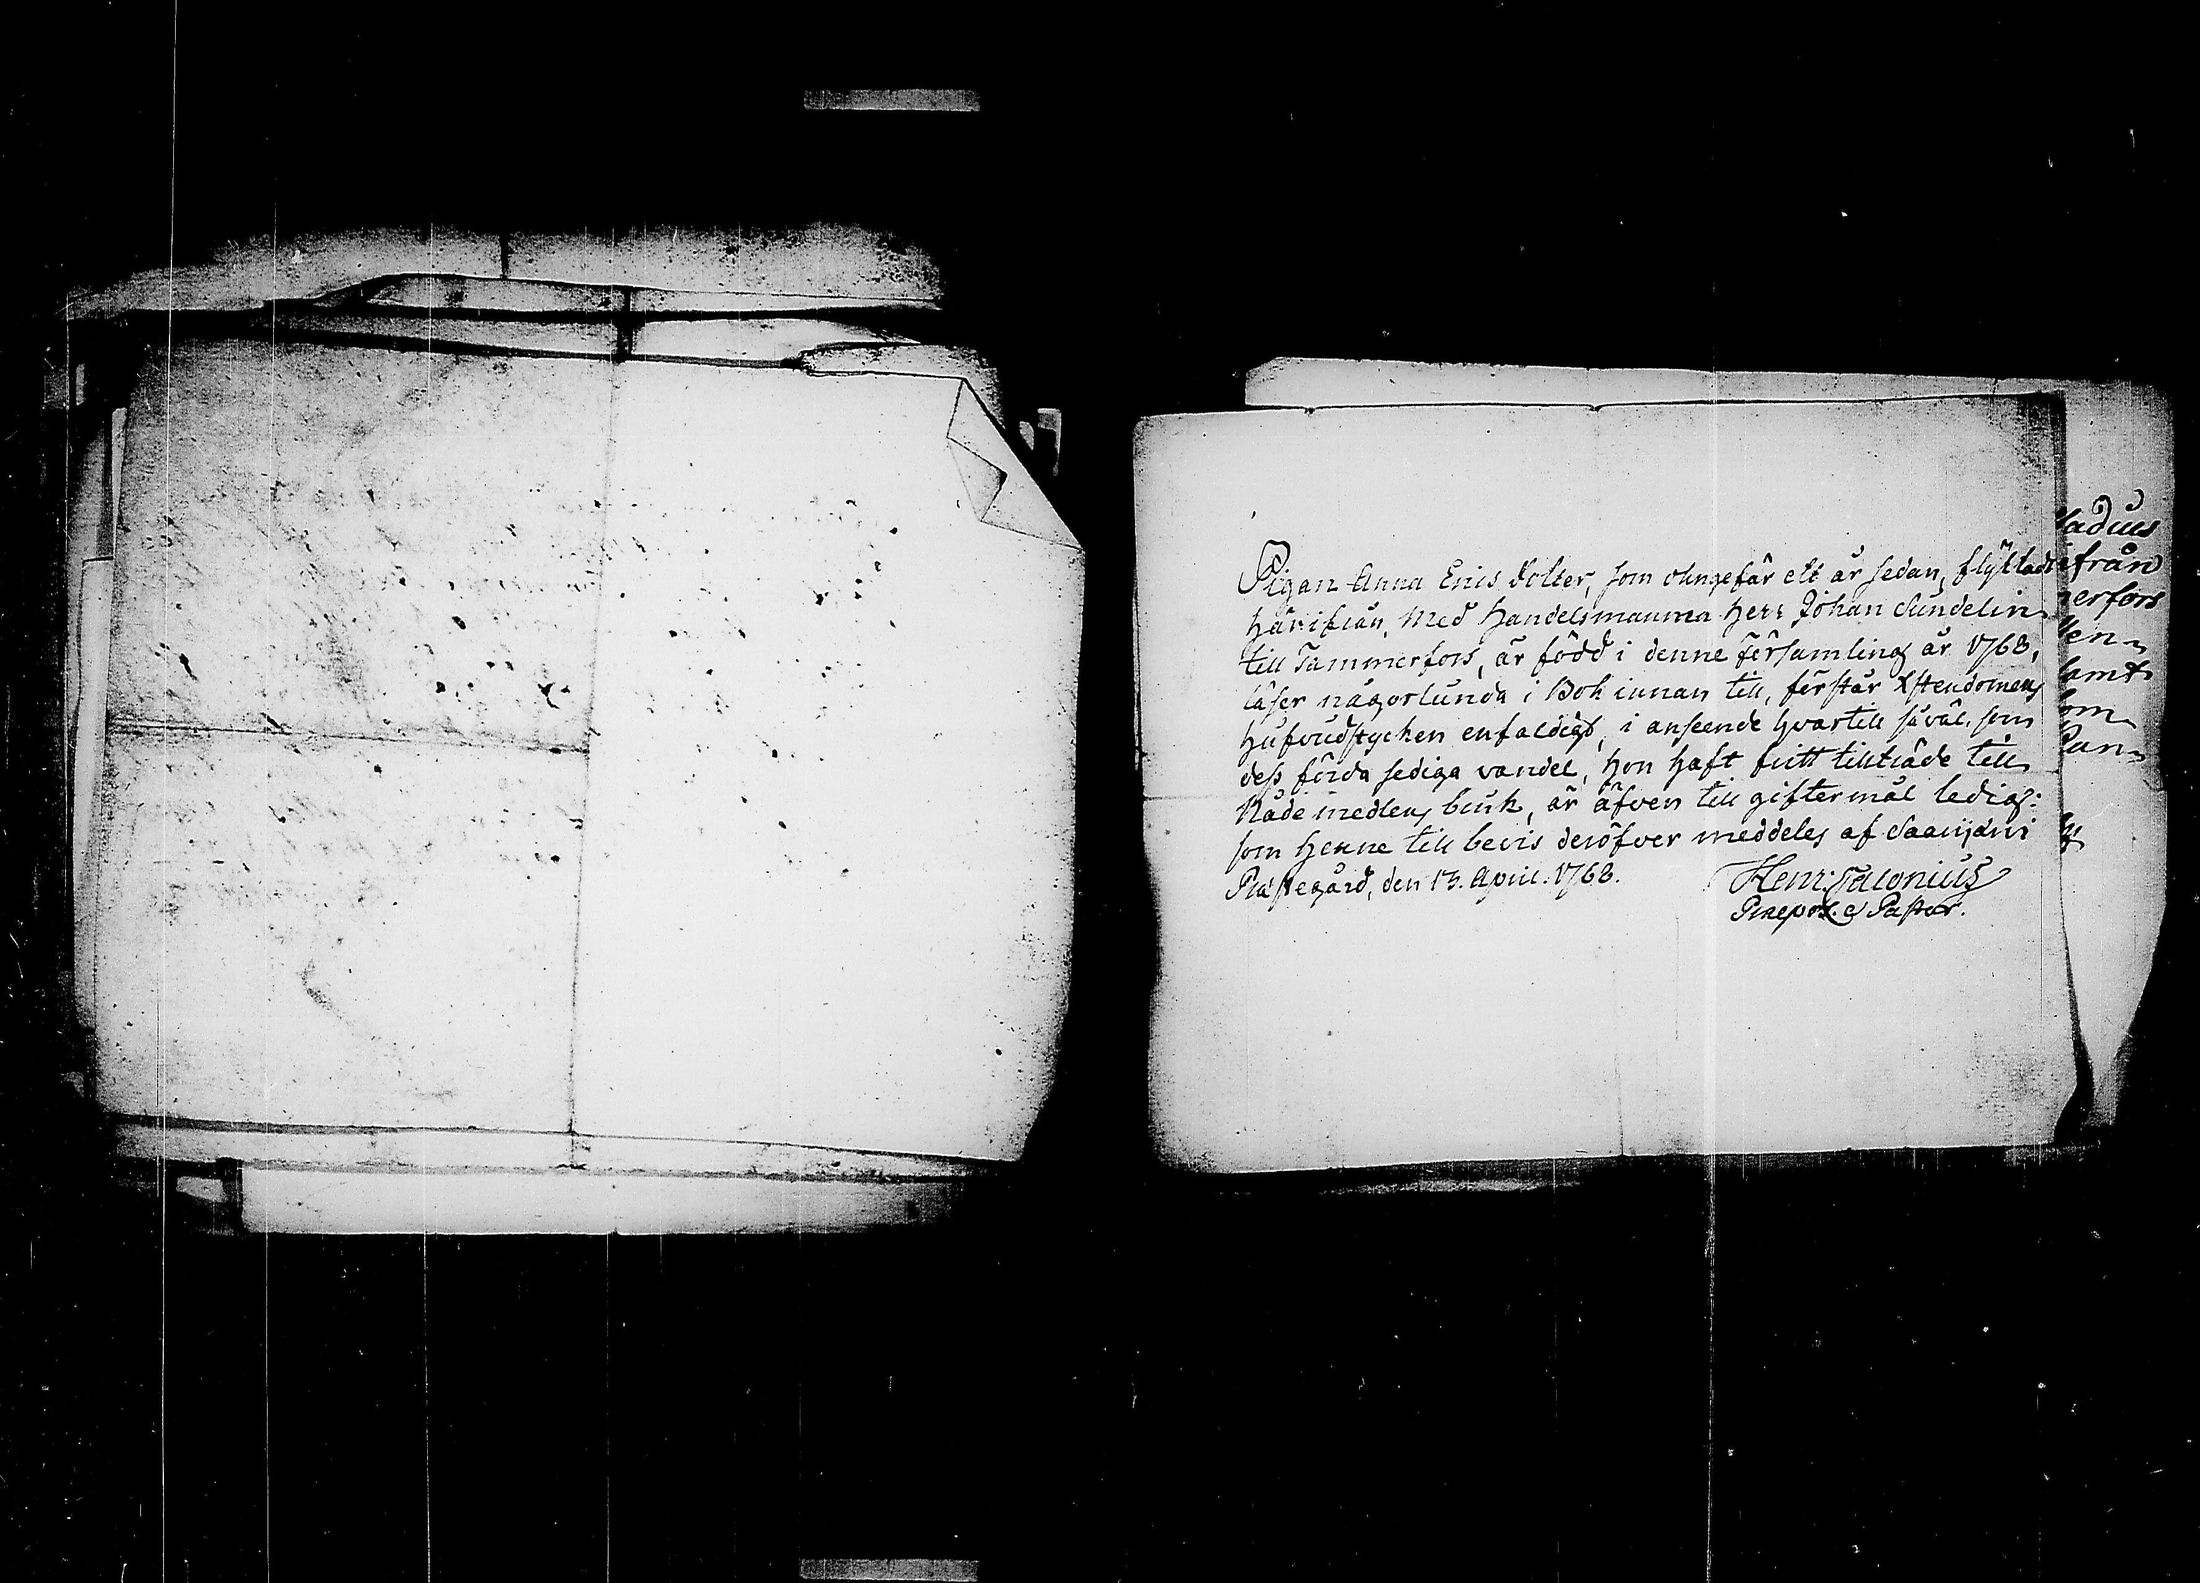 Pigan Anna Erics dotter, som ohngefär ett år sedan, flyttade
härifrån, med Handelsmannen Herr Johan Sundelin
till Tammerfors, är född i denne församling år 1768,
läser någorlunda i Bok innan till, förstår Xstendomens
hufvudstycken enfaldigt, i anseende hvartill såväl, som
dess förda sediga vandel, hon haft fritt tillträde till
Nåde medlens bruk, är äfven till giftermål ledig:
som henne till bevis deröfver meddeles af Saarijärvi
Prästegård, den 13. April. 1768.
Henr: Salonius
Praepos. & Pastor.
ladius
ifrån
nerfors
samt
som